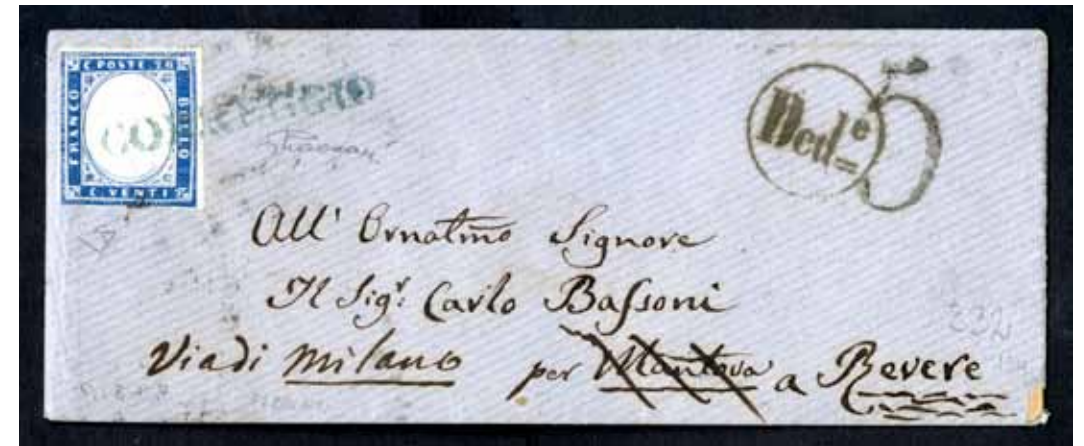 C. POSTE 20
FRANCO
BOLLO
C. VENTI
CORREGGIO
Ded.e
5
All' Ornatmo Signore
Il Sigr. Carlo Bassoni
Via di Milano per Mantova a Revere
332